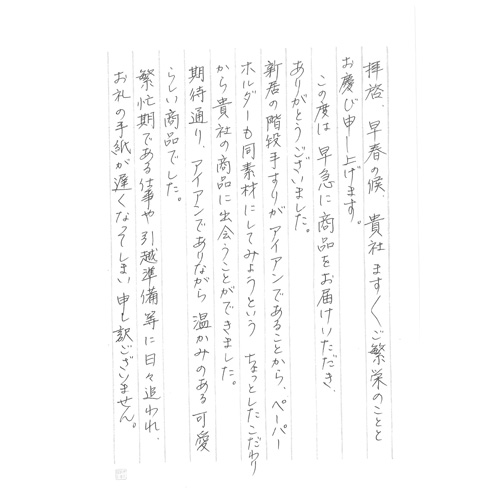 拝啓、早春の候、貴社ますますご繁栄のことと
お慶び申し上げます。
この度は早急に商品をお届けいただき、
ありがとうございました。
新居の階段手すりがアイアンであることから、ペーパー
ホルダーも同素材にしてみようという ちょっとしたこだわり
から貴社の商品に出会うことができました。
期待通り、アイアンでありながら 温かみのある可愛
らしい商品でした。
繁忙期である仕事や引越準備等に日々追われ、
お礼の手紙が遅くなってしまい申し訳ございません。